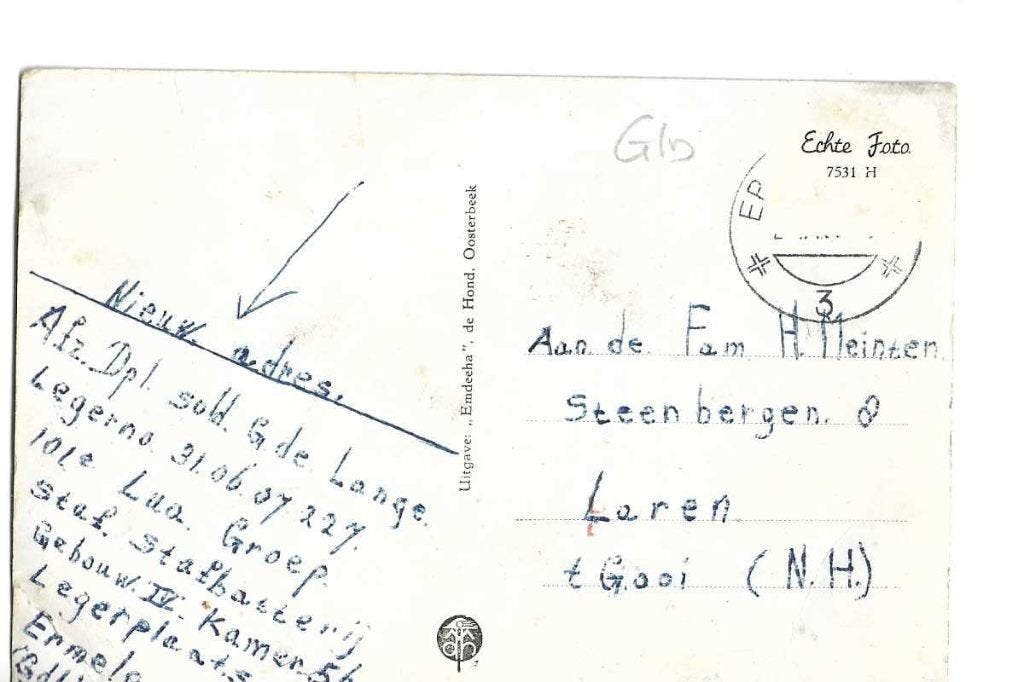 Nieuw. adres.
Afz. Dpl. sold. G de Lange.
Legerno. 31.06.07 227.
101e Lua. Groep.
Staf. Stafbatterij
Gebouw. IV Kamer 56
Legerplaats
Ermelo
Uitgave: „Emdeeha”, de Hond. Oosterbeek
Glb
Echte Foto.
7531 H
3
Aan de. Fam H. Meinten
Steenbergen. 8
Laren
t Gooi (N.H.)